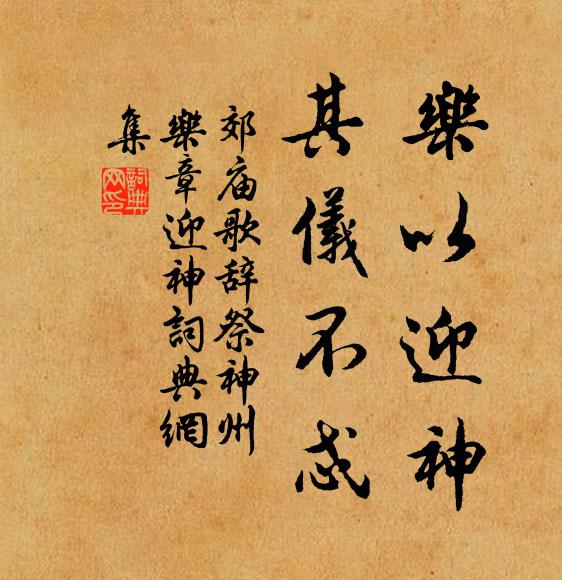 樂以迎神
其儀不忒
郊庙歌辞祭神州
樂章迎神詞典網
集